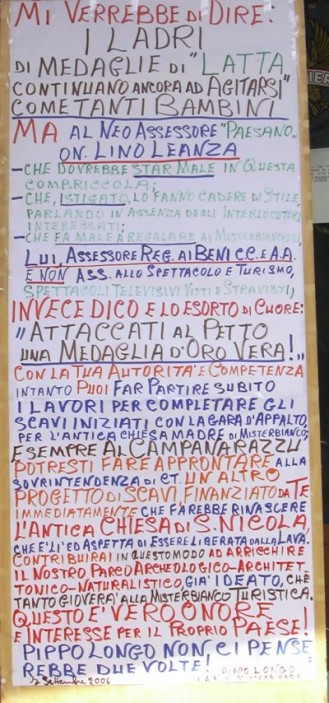 MI VERREBBE DI DIRE:
I LADRI
DI MEDAGLIE DI "LATTA,
CONTINUANO ANCORA AD AGITARSI"
COME TANTI BAMBINI
MA AL NEO ASSESSORE "PAESANO,,
ON. LINO LEANZA
-CHE DOVREBBE STAR MALE IN QUESTA
COMBRICCOLA;
-CHE, ISTIGATO, LO FANNO CADERE DI STILE,
PARLANDO IN ASSENZA DEGLI INTERLOCUTORI
INTERESSATI;
-CHE FA MALE A REGALARE AI MISTERBIANCHESI,
LUI, ASSESSORE REG. AI BENI CC. E A.A.
E NON ASS. ALLO SPETTACOLO E TURISMO,
SPETTACOLI TELEVISIVI VISTI E STRAVISTI,
INVECE DICO E LO ESORTO DI CUORE:
"ATTACCATI AL PETTO
UNA MEDAGLIA D'ORO VERA!,,
CON LA TUA AUTORITA' E COMPETENZA
INTANTO PUOI FAR PARTIRE SUBITO
I LAVORI PER COMPLETARE GLI
SCAVI INIZIATI CON LA GARA D'APPALTO,
PER L'ANTICA CHIESA MADRE DI MISTERBIANCO;
E SEMPRE AL CAMPANARAZZU
POTRESTI FARE APPRONTARE ALLA
SOVRINTENDENZA DI CT. UN ALTRO
PROGETTO DI SCAVI, FINANZIATO DA TE
IMMEDIATAMENTE CHE FAREBBE RINASCERE
L'ANTICA CHIESA DI S. NICOLA,
CHE E' LI' ED ASPETTA DI ESSERE LIBERATA DALLA LAVA.
CONTRIBUIRAI IN QUESTO MODO AD ARRICCHIRE
IL NOSTRO PARCO ARCHEOLOGICO-ARCHITET
TONICO-NATURALISTICO, GIA' IDEATO, CHE
TANTO GIOVERA' ALLA MISTERBIANCO TURISTICA.
QUESTO E' VERO ONORE
E INTERESSE PER IL PROPRIO PAESE!
PIPPO LONGO NON CI PENSE
REBBE DUE VOLTE!
PIPPO LONGO
2 Settembre 2006